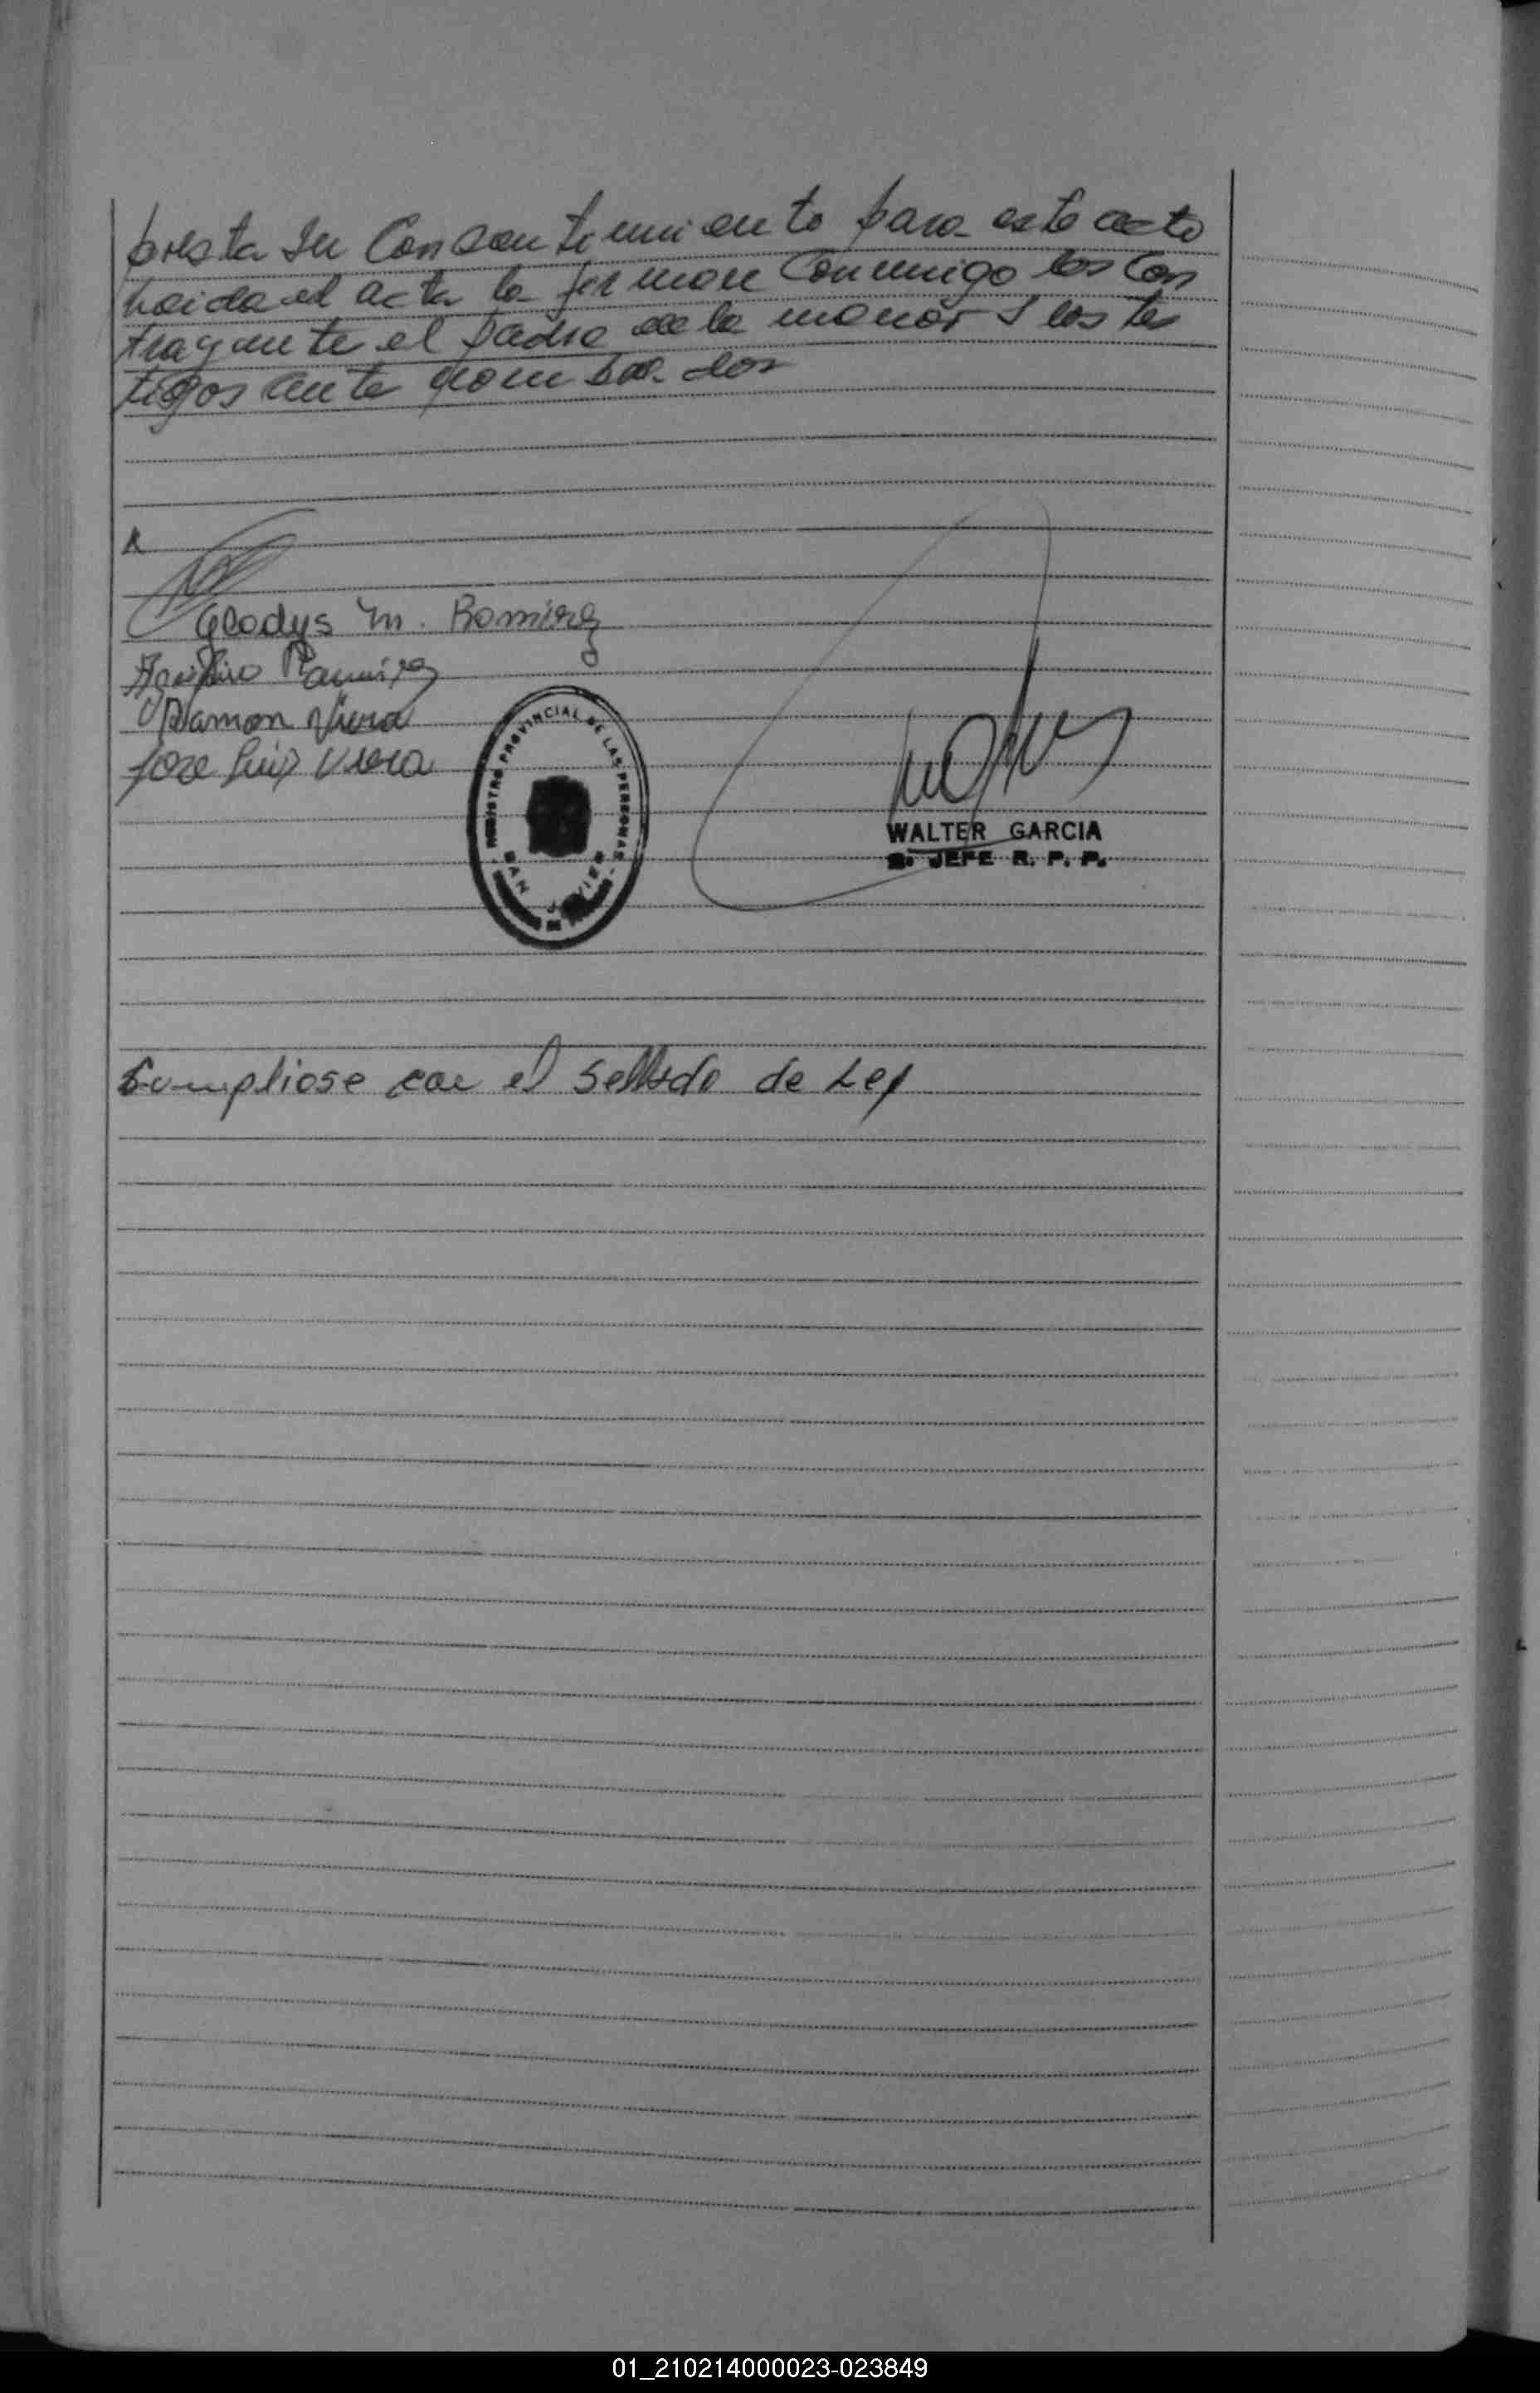 presta su Consentimiento para este acto
Leida el acta la firman Conmigo los Con
trayente el padre de la menor y los tes
tigos ante nombrados
Gladys M. Ramirez
Ramirez
Ramon Viera
Jose Luis Viera
REGISTRO PROVINCIAL DE LAS PERSONAS
SAN
WALTER GARCIA
JEFE R. P. P.
Cumpliose con el Sellado de Ley
01_210214000023-023849